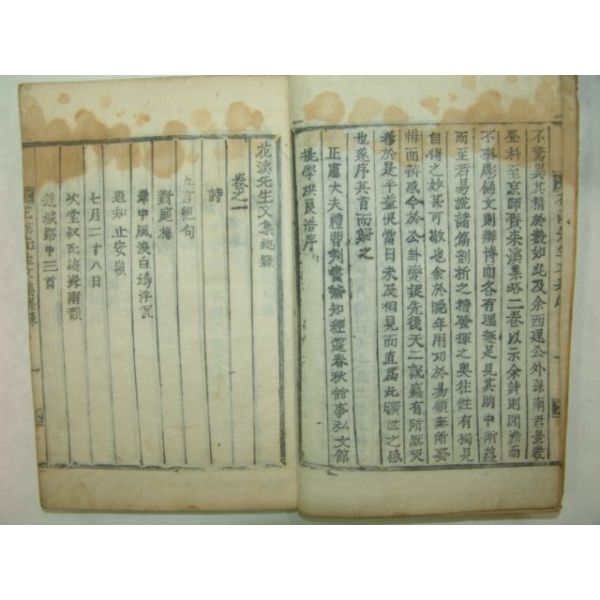 不驚異其精於數如此及余西還公外孫南君景羲
登科至京師賫來溪集略二卷以示余詩則閒澹而
不事彫餙文則辯博而各有理趣足見其胸中所蘊
而至若易說諸篇剖析之精發揮之奧往往有獨見
自得之妙甚可敬也余於晩年用功於易頗無所發
於公卦變說先後天二說竊有所默契
者於是乎益恨當日未及相見而直爲此曠世之感
也遂序其首而歸之
正憲大夫禮曹判書兼知經筵春秋館事弘文館
提學洪良浩序
花溪先生文集總目
卷之一
詩
五言絶句
對庭梅
舟中風浪白鴎浮沉
七月二十八日
次堂叔氏南韻
蓮城路中三首